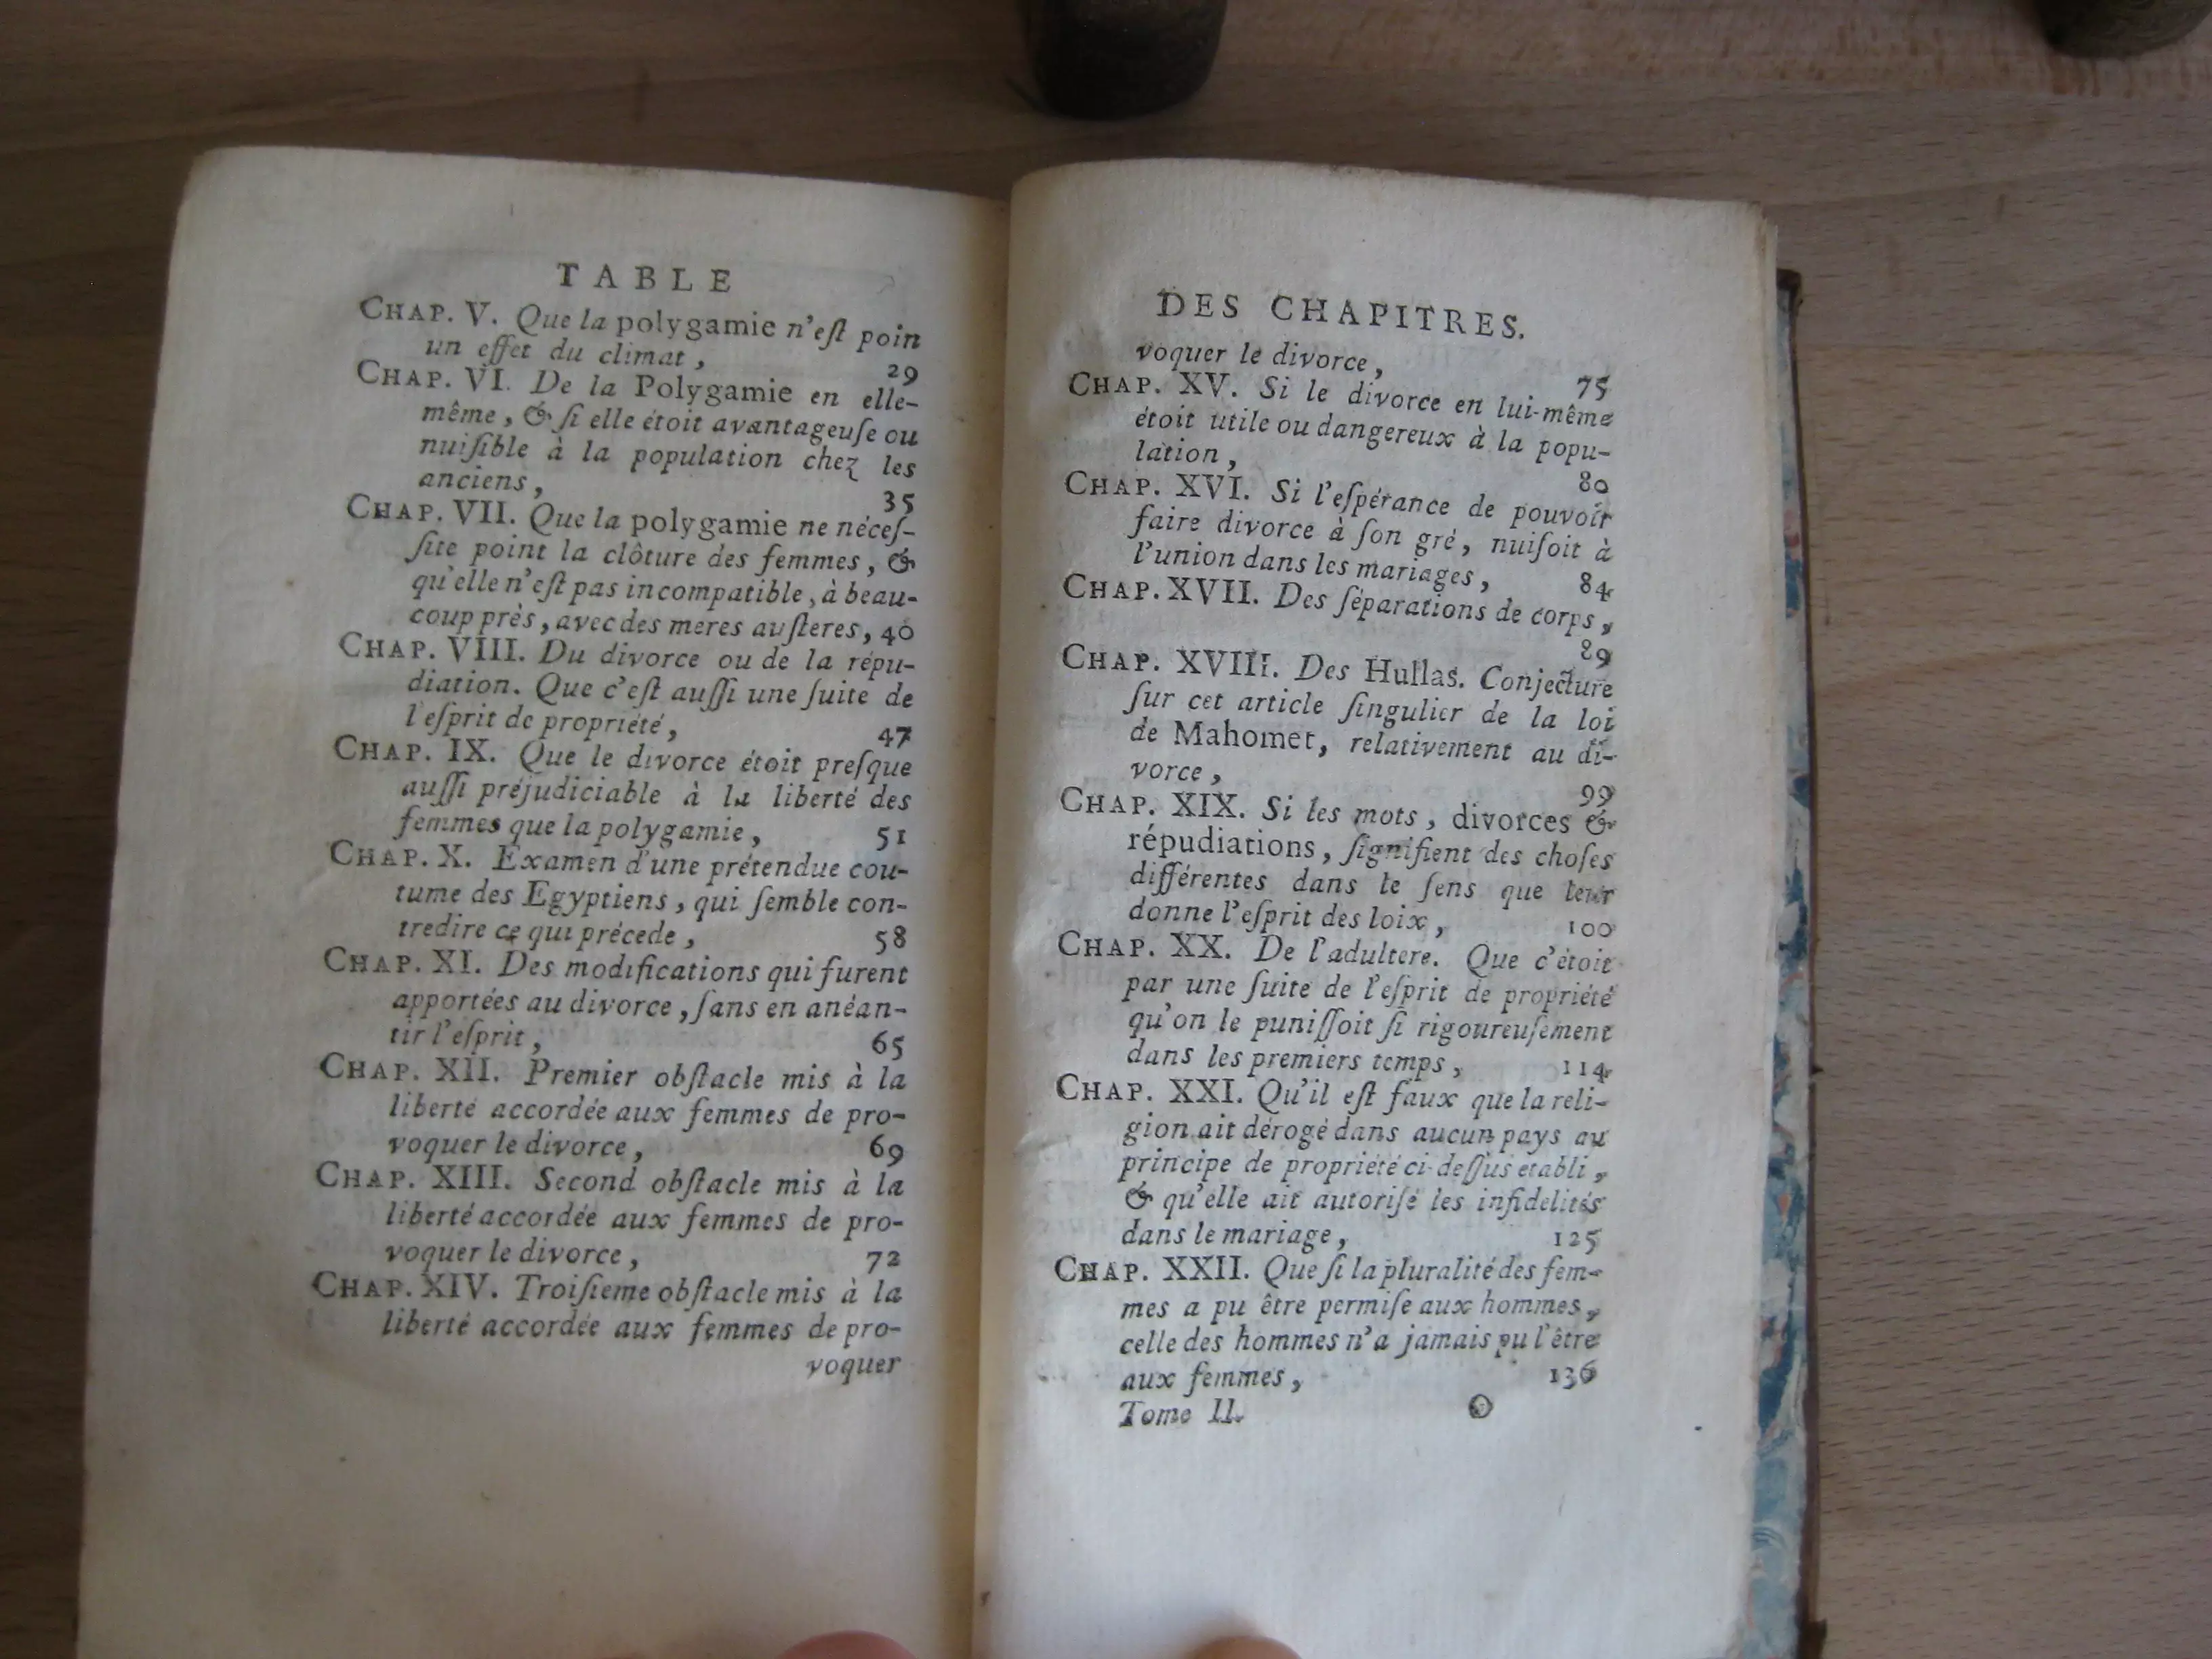 TABLE
CHAP. V. Que la polygamie n'eſt poin
un effet du climat, 29
CHAP. VI. De la Polygamie en elle-
même, & ſi elle étoit avantageuſe ou
nuiſible à la population chez les
anciens, 35
CHAP. VII. Que la polygamie ne néceſ-
ſite point la clôture des femmes, &
qu'elle n'eſt pas incompatible, à beau-
coup près, avec des meres auſteres, 40
CHAP. VIII. Du divorce ou de la répu-
diation. Que c'eſt auſſi une ſuite de
l'eſprit de propriété, 47
CHAP. IX. Que le divorce étoit preſque
auſſi préjudiciable à la liberté des
femmes que la polygamie, 51
CHAP. X. Examen d'une prétendue cou-
tume des Egyptiens, qui ſemble con-
tredire ce qui précede, 58
CHAP. XI. Des modifications qui furent
apportées au divorce, ſans en anéan-
tir l'eſprit, 65
CHAP. XII. Premier obſtacle mis à la
liberté accordée aux femmes de pro-
voquer le divorce, 69
CHAP. XIII. Second obſtacle mis à la
liberté accordée aux femmes de pro-
voquer le divorce, 72
CHAP. XIV. Troiſieme obſtacle mis à la
liberté accordée aux femmes de pro-
voquer
DES CHAPITRES.
voquer le divorce, 75
CHAP. XV. Si le divorce en lui-même
étoit utile ou dangereux à la popu-
lation, 80
CHAP. XVI. Si l'eſpérance de pouvoir
faire divorce à ſon gré, nuiſoit à
l'union dans les mariages, 84
CHAP. XVII. Des ſéparations de corps,
89
CHAP. XVIII. Des Hullas. Conjecture
ſur cet article ſingulier de la loi
de Mahomet, relativement au di-
vorce, 99
CHAP. XIX. Si les mots, divorces &
répudiations, ſignifient des choſes
différentes dans le ſens que leur
donne l'eſprit des loix, 100
CHAP. XX. De l'adultere. Que c'étoit
par une ſuite de l'eſprit de propriété
qu'on le puniſſoit ſi rigoureuſement
dans les premiers temps, 114
CHAP. XXI. Qu'il eſt faux que la reli-
gion ait dérogé dans aucun pays au
principe de propriété ci-deſſus etabli,
& qu'elle ait autoriſé les infidelités
dans le mariage, 125
CHAP. XXII. Que ſi la pluralité des fem-
mes a pu être permiſe aux hommes,
celle des hommes n'a jamais pu l'être
aux femmes, 136
Tome II. O